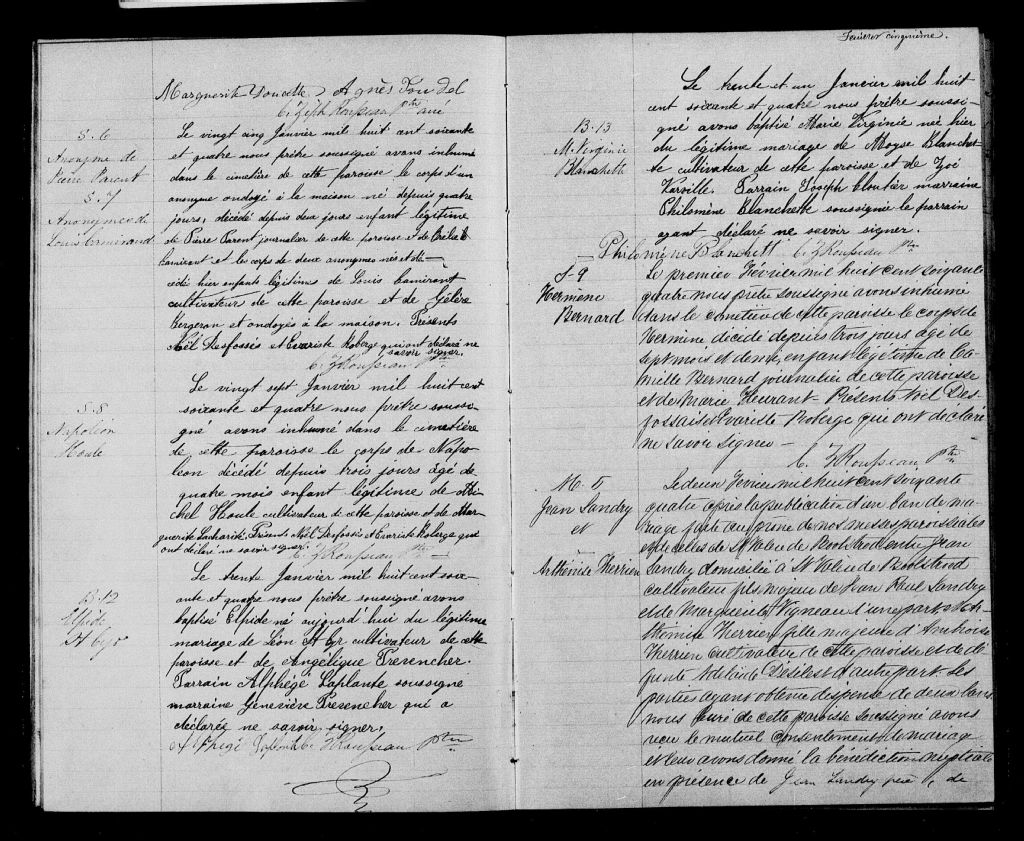 Marguerite Doucette, Agnès
C. Z. Rousseau Ptre curé
S. 6
Anonyme de
Pierre Parent
S. 7
Anonymes de
Louis
Le vingt cinq Janvier mil huit cent soixante
et quatre nous prêtre soussigné avons inhumé
dans le cimetière de cette paroisse le corps d'un
anonyme ondoyé à la maison né depuis quatre
jours, décédé depuis deux jours enfant légitime
de Pierre Parent journalier de cette paroisse et de
et les corps de deux anonymes nés et dé-
cédé hier enfants légitimes de Louis
cultivateur de cette paroisse et de
Bergeron et ondoyés à la maison. Présents
Noël Desfossés et Evariste Roberge qui ont déclaré ne
savoir signer.
C. Z. Rousseau Ptre
S. 8
Napoléon
Houle
Le vingt sept Janvier mil huit cent
soixante et quatre nous prêtre soussi-
gné avons inhumé dans le cimetière
de cette paroisse le corps de Napo-
léon décédé depuis trois jours âgé de
quatre mois enfant légitime de Mi-
chel Houle cultivateur de cette paroisse et de Mar-
guerite Présents Noël Desfossés et Evariste Roberge qui
ont déclaré ne savoir signer.
C. Z. Rousseau Ptre
B. 12
Elpide
St Cyr
Le trente Janvier mil huit cent soix-
ante et quatre nous prêtre soussigné avons
baptisé Elpide né aujourd'hui du légitime
mariage de Léon St Cyr cultivateur de cette
paroisse et de Angélique Presencher.
Parrain Alphégé Laplante soussigné
marraine Geneviève Presencher qui a
déclarée ne savoir signer.
Alphégé C. Z. Rousseau Ptre
Feuillet cinquième.
B. 13
M. Virginie
Blanchette
Le trente et un Janvier mil huit
cent soixante et quatre nous prêtre soussi-
gné avons baptisé Marie Virginie née hier
du légitime mariage de Moyse Blanchet-
te cultivateur de cette paroisse et de Zoé
Verville. Parrain Joseph Cloutier marraine
Philomène Blanchette soussignée le parrain
ayant déclaré ne savoir signer.
Philomène Blanchett C. Z. Rousseau Ptre
S. 9
Hermine
Bernard
Le premier Fevrier mil huit cent soixante
quatre nous prêtre soussigné avons inhumé
dans le cimetière de cette paroisse le corps de
Hermine décédé depuis trois jours âgé de
sept mois et demi, enfant légitime de Ca-
mille Bernard journalier de cette paroisse
et de Marie Heurant. Présents Noël Des-
fossés et Evariste Roberge qui ont déclaré
ne savoir signer —
C. Z. Rousseau Ptre
M.
Jean Landry
et
Arthémise Therrien
Le deux Fevrier mil huit cent soixante
quatre après la publication d'un ban de ma-
riage faite au prône de nos messes paroissiales
et de celles de St Valère de Bulstrode entre Jean
Landry domicilié à St Valère de Bulstrode
cultivateur fils majeur de Jean Landry
et de Marguerite Vigneau d'une part & Ar-
thémise Therrien fille majeure d'
Therrien cultivateur de cette paroisse et de dé-
funte Adelaïde Desilets d'autre part. Les
parties ayant obtenu dispense de deux bans
nous Curé de cette paroisse soussigné avons
reçu le mutuel consentement de mariage
et leur avons donné la bénédiction nuptiale
en présence de Jean Landry père de